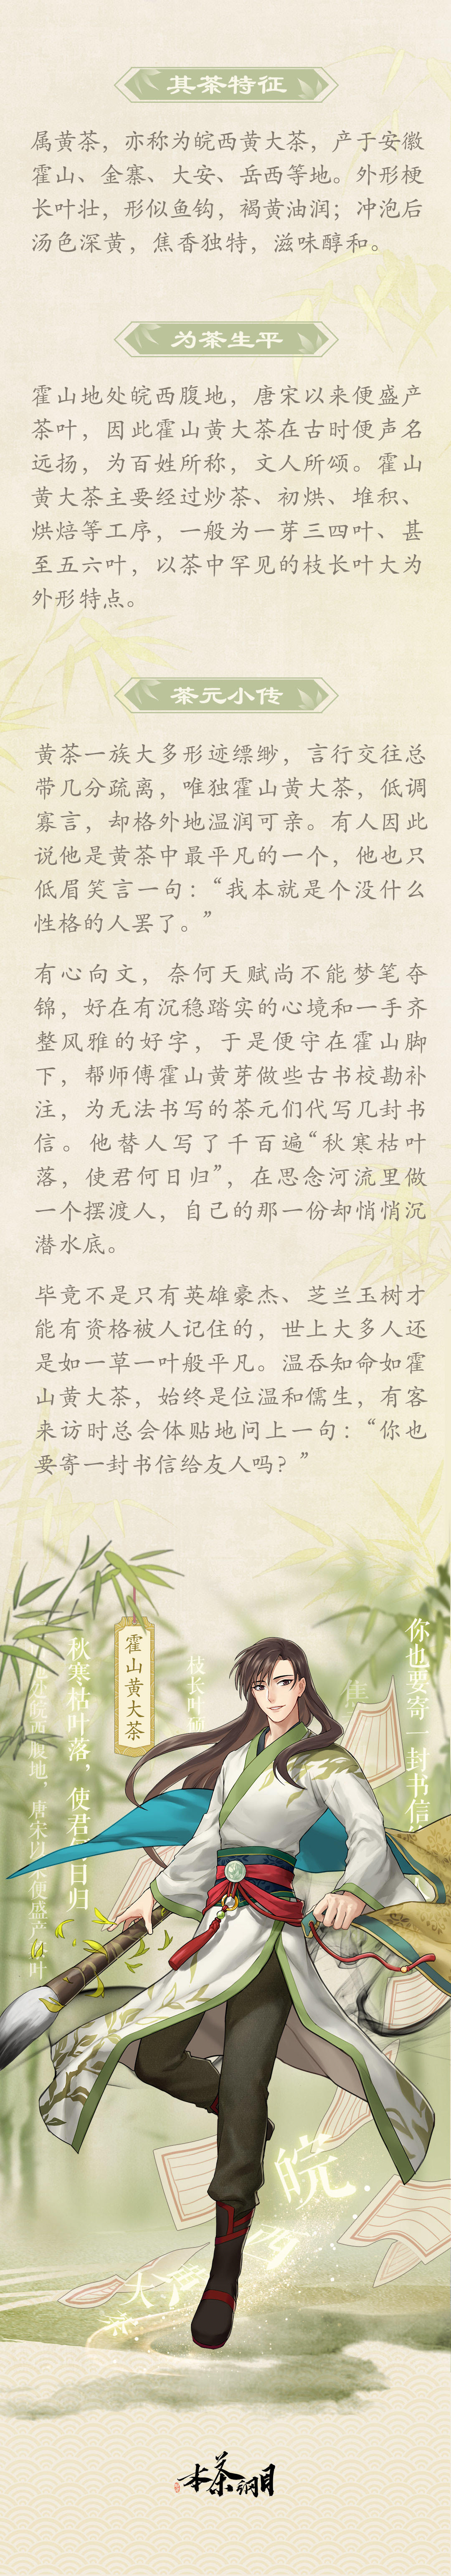 其茶特征
属黄茶，亦称为皖西黄大茶，产于安徽
霍山、金寨、大安、岳西等地。外形梗
长叶壮，形似鱼钩，褐黄油润；冲泡后
汤色深黄，焦香独特，滋味醇和。
为茶生平
霍山地处皖西腹地，唐宋以来便盛产
茶叶，因此霍山黄大茶在古时便声名
远扬，为百姓所称，文人所颂。霍山
黄大茶主要经过炒茶、初烘、堆积、
烘焙等工序，一般为一芽三四叶、甚
至五六叶，以茶中罕见的枝长叶大为
外形特点。
茶元小传
黄茶一族大多形迹缥缈，言行交往总
带几分疏离，唯独霍山黄大茶，低调
寡言，却格外地温润可亲。有人因此
说他是黄茶中最平凡的一个，他也只
低眉笑言一句：“我本就是个没什么
性格的人罢了。”
有心向文，奈何天赋尚不能梦笔夺
锦，好在有沉稳踏实的心境和一手齐
整风雅的好字，于是便守在霍山脚
下，帮师傅霍山黄芽做些古书校勘补
注，为无法书写的茶元们代写几封书
信。他替人写了千百遍“秋寒枯叶
落，使君何日归”，在思念河流里做
一个摆渡人，自己的那一份却悄悄沉
潜水底。
毕竟不是只有英雄豪杰、芝兰玉树才
能有资格被人记住的，世上大多人还
是如一草一叶般平凡。温吞知命如霍
山黄大茶，始终是位温和儒生，有客
来访时总会体贴地问上一句：“你也
要寄一封书信给友人吗？”
你也要寄一封书信
枝长叶硕
焦
霍山黄大茶
秋寒枯叶落，使君何日归
皖西腹地，唐宋以来便盛产茶叶
皖
西
黄
大
茶
本茶纲目